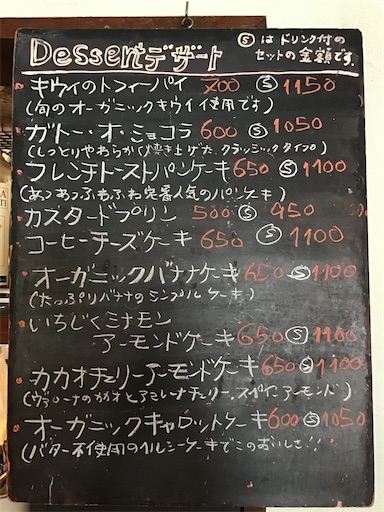 Dessertデザート
Ⓢはドリンク付の
セットの金額です。
キウィのトフィーパイ 700 Ⓢ1150
(旬のオーガニックキウイ使用です)
ガトー・オ・ショコラ 600 Ⓢ1050
(しっとりやわらかく焼き上げた クラッシックタイプ)
フレンチトーストパンケーキ650 Ⓢ1100
(あつあつふわふわ定番人気のパンケーキ)
カスタードプリン 500 Ⓢ 950
コーヒーチーズケーキ 650 Ⓢ 1100
オーガニックバナナケーキ 650 Ⓢ1100
(たっぷりバナナのシンプルケーキ)
いちじくシナモン
アーモンドケーキ650 Ⓢ1100
カカオチェリーアーモンドケーキ650 Ⓢ1100
(ヴァローナのカカオとアマレーナチェリー、スペインアーモンド)
オーガニックキャロットケーキ600 Ⓢ1050
(バター不使用のヘルシーケーキでこのおいしさ!!)